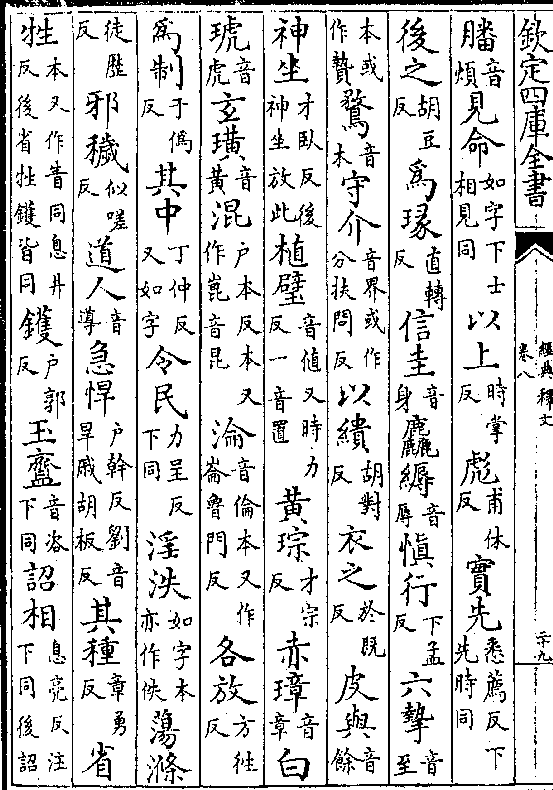 欽定四庫全書
經典釋文
卷八
二十九
膰音煩見命如字下士相見同以上時掌反彪甫休反實先悉薦反下先時同
後之胡豆反為瑑直轉反信圭音身麤縟音辱慎行下孟反六摯音至
本或作贄鶩音木守介音界或作分扶問反以繢胡對反衣之於既反皮與音餘
神坐才臥反後神坐放此植璧音值又時力反一音置黃琮才宗反赤璋音章白
琥音虎玄璜音黃混戶本反本又作崑音昆淪音倫本又作崙魯門反各放方往反
為制于偽反其中丁仲反又如字令民力呈反下同淫泆如字本亦作佚蕩滌
徒歷反邪穢似嗟反道人音導急悍戶幹反劉音旱戚胡板反其種章勇反省
牲本又作眚同息井反後省牲鑊皆同鑊戶郭反玉齍音咨下同詔相息亮反注下同後詔